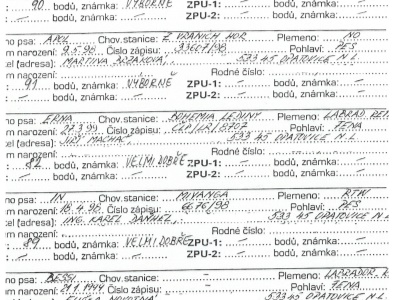 90 bodů, známka: VÝBORNĚ ZPU-1: bodů, známka:
bodů, známka: ZPU-2: bodů, známka:
no psa: AXL Chov.stanice: Z VRANÍCH HOR Plemeno: NO
m narození: 9.5.96 Číslo zápisu: 33607/96 Pohlaví: PES
el (adresa): MARTINA 533 45 OPATOVICE N.L.
m narození: Rodné číslo:
91 bodů, známka: VÝBORNĚ ZPU-1: bodů, známka:
bodů, známka: ZPU-2: bodů, známka:
no psa: ERNA Chov.stanice: BOHEMIA LEDINY Plemeno: LABRAD.
m narození: 27.3.99 Číslo zápisu: CLP/LR/8707 Pohlaví: FENA
el (adresa): JIŘÍ MACHAČ, 533 45 OPATOVICE N.L.
m narození: Rodné číslo:
82 bodů, známka: VELMI DOBŘE ZPU-1: bodů, známka:
bodů, známka: ZPU-2: bodů, známka:
no psa: IN Chov.stanice: MIVANGA Plemeno: RTW
m narození: 18.4.96 Číslo zápisu: 6676/98 Pohlaví: PES
el (adresa): ING. KAREL 533 45 OPATOVICE N.L.
m narození: Rodné číslo:
89 bodů, známka: VELMI DOBŘE ZPU-1: bodů, známka:
bodů, známka: ZPU-2: bodů, známka:
no psa: BESSI Chov.stanice: - Plemeno: LABRADOR
m narození: Číslo zápisu: - Pohlaví: FENA
NOVOTNÁ 533 45 OPATOVICE N.L.